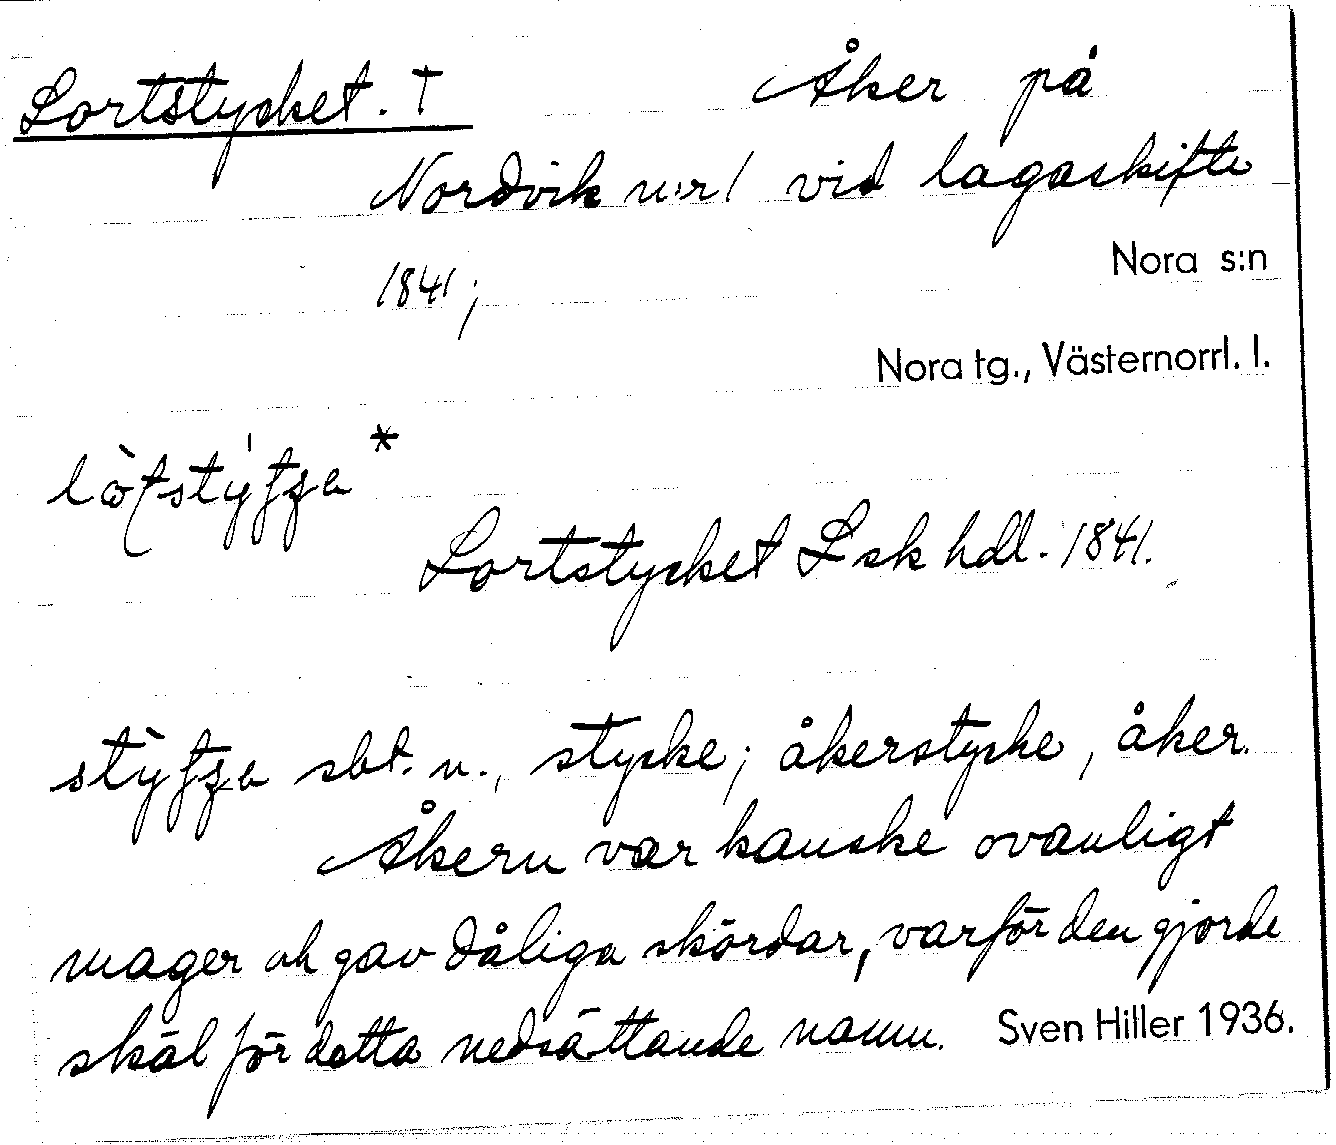 Lortstycket. † Åker på
Nordvik n:r 1 vid lagaskifte
1841;
Nora s:n
Nora tg., Västernorrl. l.
Lortstycket Lsk hdl. 1841.
sbt. n., stycke; åkerstycke, åker.
Åkern var kanske ovanligt
mager och gav dåliga skördar, varför den gjorde
skäl för detta nedsättande namn. Sven Hiller 1936.